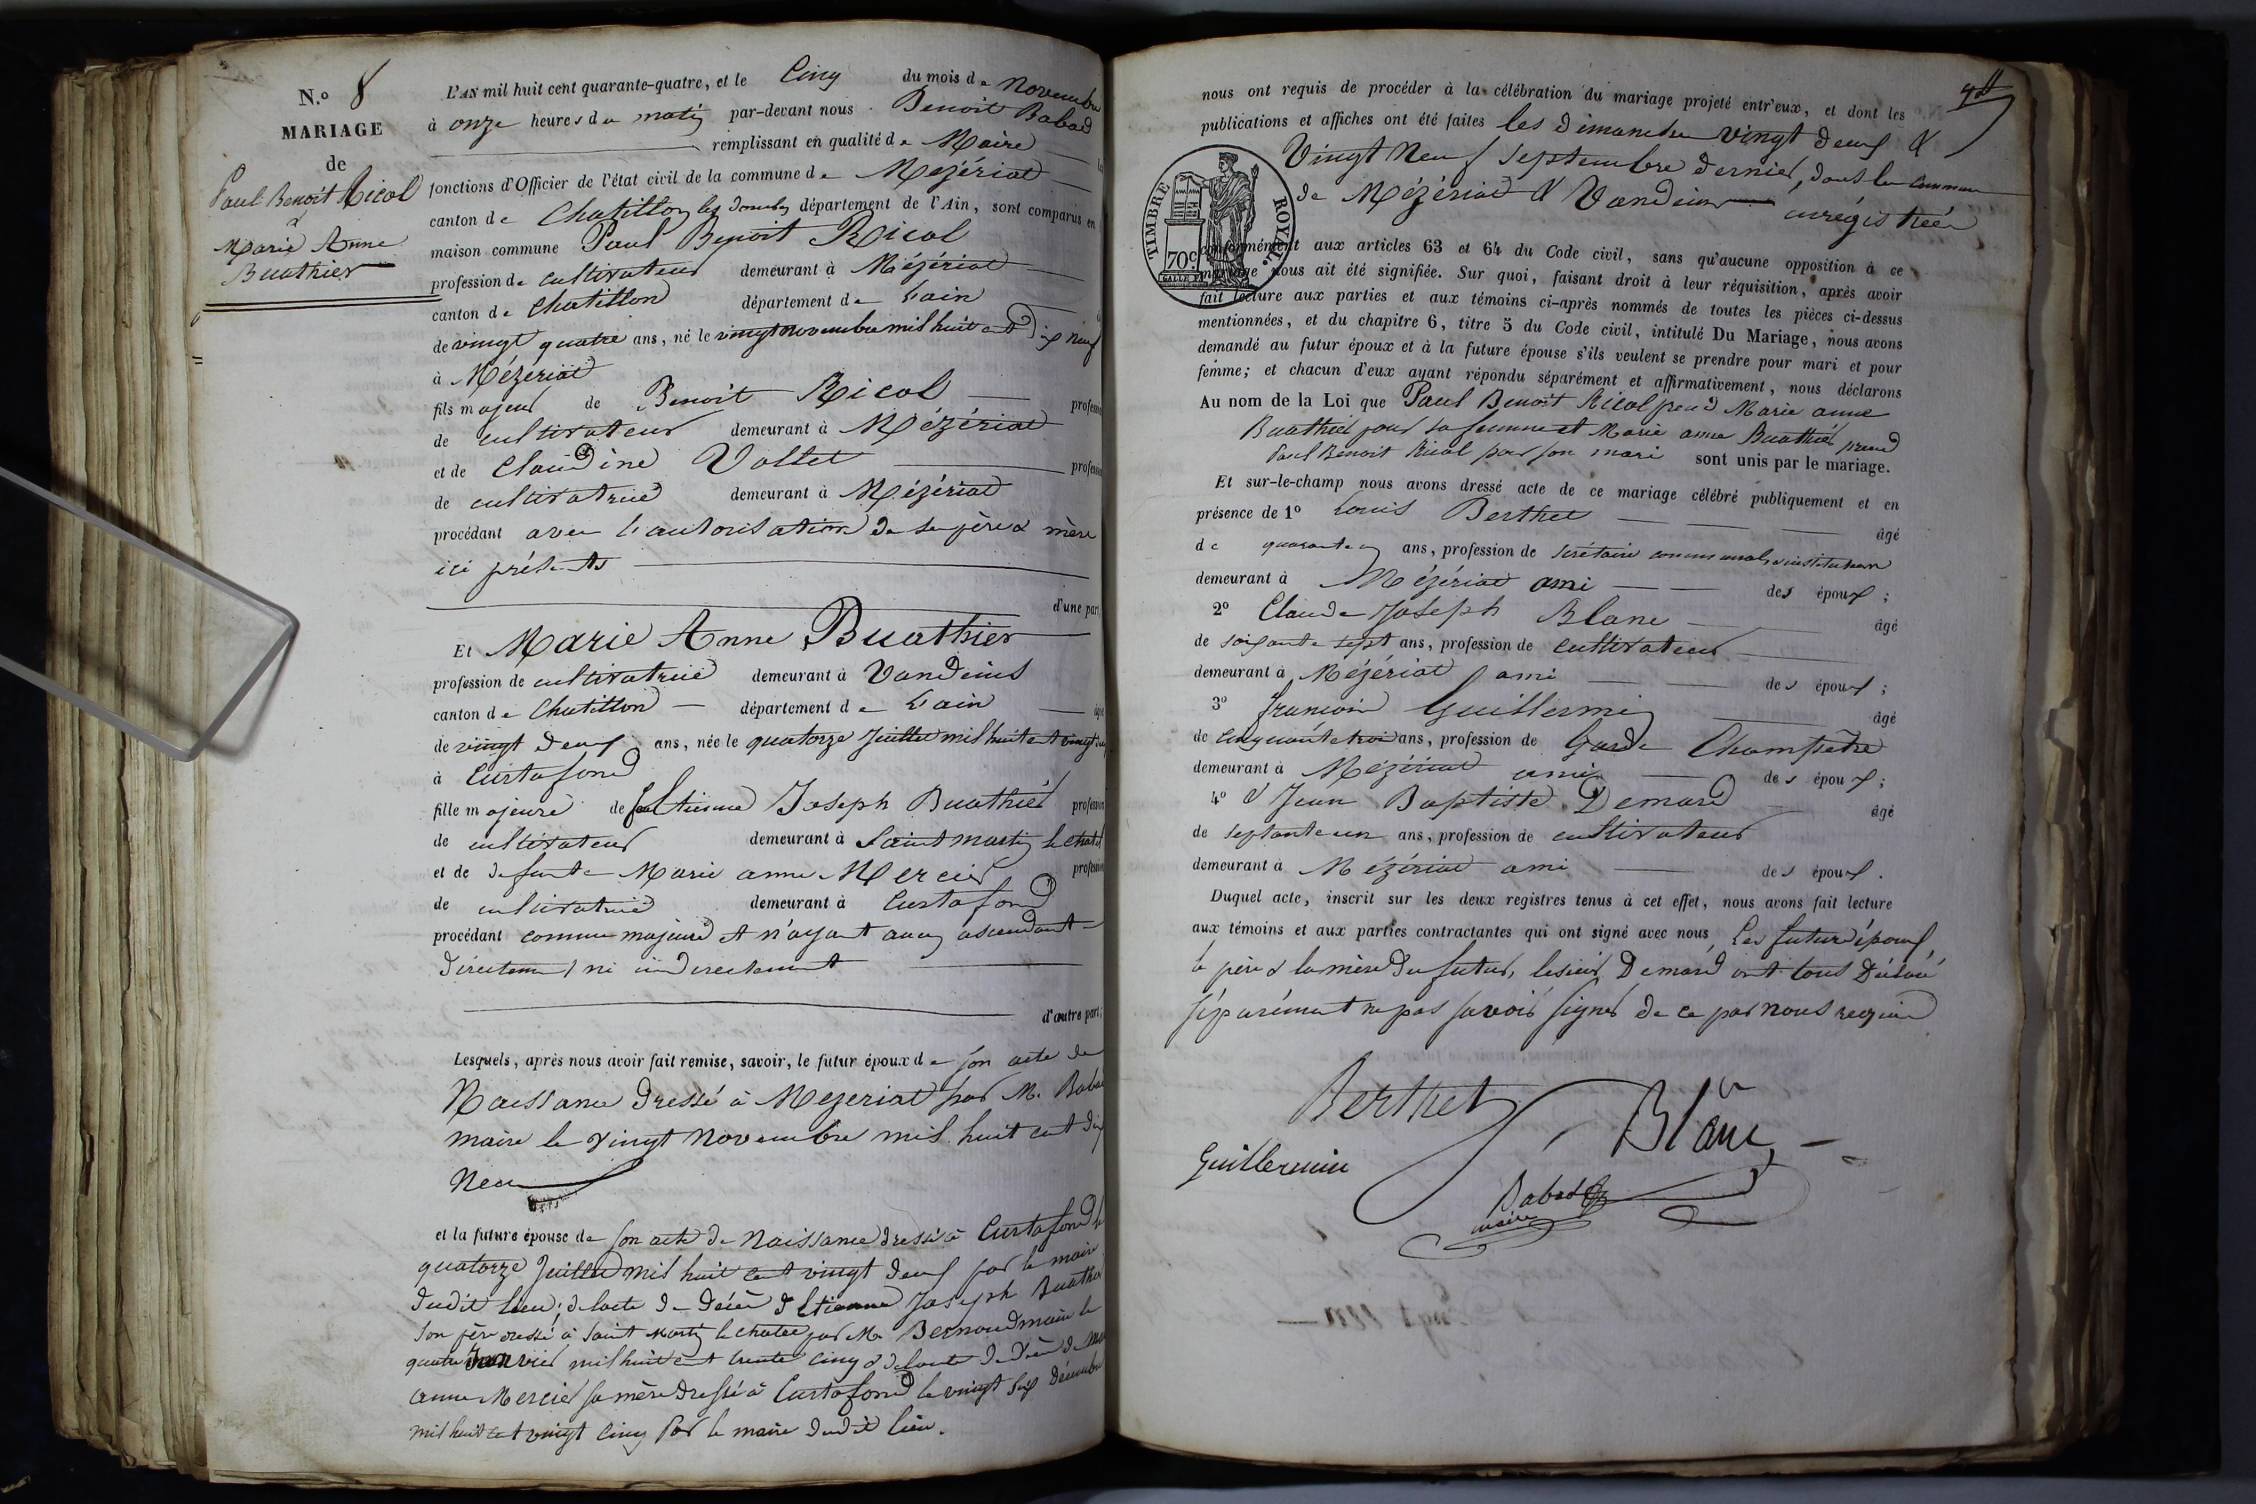 N.o 8
MARIAGE
de
Paul Benoit Ricol
&
Marie Anne
Buathier
L'AN mil huit cent quarante-quatre, et le Cinq du mois de Novembre
à onze heures du matin par-devant nous Benoit Babad
remplissant en qualité de Maire
fonctions d'Officier de l'état civil de la commune de Mézériat
canton de Chatillon les Dombes département de l'Ain, sont comparus en
maison commune Paul Benoit Ricol
profession de cultivateur demeurant à Mézériat
canton de Chatillon département de L'ain
de vingt quatre ans, né le vingt novembre mil huit cent Dix neuf
à Mézériat
fils majeur de Benoit Ricol profession
de cultivateur demeurant à Mézériat
et de Claudine Vallet profession
de cultivatrice demeurant à Mézériat
procédant avec l'autorisation de ses père & mère
ici présents
d'une part
Et Marie Anne Buathier
profession de cultivatrice demeurant à Vandeins
canton de Chatillon département de L'ain
de vingt deux ans, née le quatorze Juillet mil huit cent vingt deux
à Curtafond
fille majeure de feu Etienne Joseph Buathier profession
de cultivateur demeurant à Saint Martin le chatel
et de defunte Marie anne Mercier profession
de cultivatrice demeurant à Curtafond
procédant comme majeure et n'ayant aucun ascendant
directement ni indirectement
d'autre part;
Lesquels, après nous avoir fait remise, savoir, le futur époux de son acte de
Naissance dressé à Mezeriat par M. Babad
maire le vingt Novembre mil huit cent dix
Neuf
et la future épouse de son acte de Naissance dressé à Curtafond le
quatorze Juillet mil huit cent vingt deux par le maire
dudit lieu; de l'acte de décès d'Etienne Joseph Buathier
son père dressé à Saint Martin le chatel par M. Bernoud maire le
quatre Janvier mil huit cent trente cinq & de l'acte de Décès de Marie
anne Mercier sa mère dressé à Curtafond le vingt six décembre
mil huit cent vingt cinq par le maire dudit lieu.
nous ont requis de procéder à la célébration du mariage projeté entr'eux, et dont les
publications et affiches ont été faites les dimanches vingt deux &
Vingt Neuf Septembre dernier, dans les communes
de Mézériat & Vandeins enrégistrées
TIMBRE ROYAL.
70c
conformément aux articles 63 et 64 du Code civil, sans qu'aucune opposition à ce
mariage nous ait été signifiée. Sur quoi, faisant droit à leur réquisition, après avoir
fait lecture aux parties et aux témoins ci-après nommés de toutes les pièces ci-dessus
mentionnées, et du chapitre 6, titre 5 du Code civil, intitulé Du Mariage, nous avons
demandé au futur époux et à la future épouse s'ils veulent se prendre pour mari et pour
femme; et chacun d'eux ayant répondu séparément et affirmativement, nous déclarons
Au nom de la Loi que Paul Benoit Ricol prend Marie anne
Buathier pour sa femme et Marie anne Buathier prend
Paul Benoit Ricol pour son mari sont unis par le mariage.
Et sur-le-champ nous avons dressé acte de ce mariage célébré publiquement et en
présence de 1o Louis Berthet âgé
de ans, profession de secrétaire communal & instituteur
demeurant à Mézériat ami des époux;
2o Claude Joseph Blanc âgé
de soixante sept ans, profession de cultivateur
demeurant à Mézériat ami des époux;
3o francois Guillermin âgé
de cinquante trois ans, profession de Garde Champêtre
demeurant à Mézériat ami des époux;
4o & Jean Baptiste Demard âgé
de septante un ans, profession de cultivateur
demeurant à Mézériat ami des époux.
Duquel acte, inscrit sur les deux registres tenus à cet effet, nous avons fait lecture
aux témoins et aux parties contractantes qui ont signé avec nous Les futurs époux,
le père & la mère du futur, le sieur Demard ont tous Déclaré
séparément ne pas savoir signer de ce par nous requis
Berthet
Blanc
Guillermin
Babad
maire